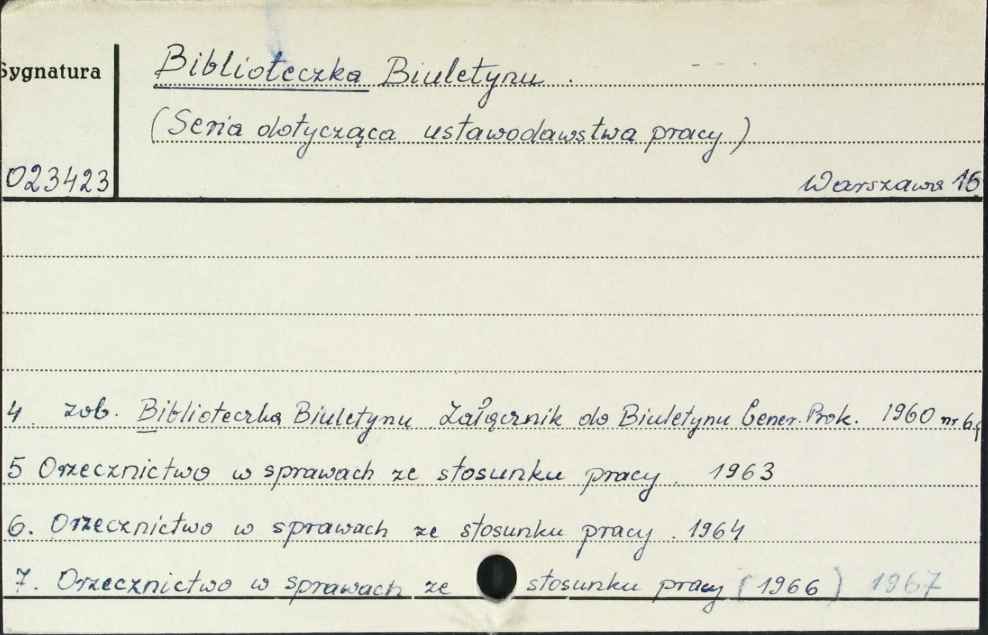 Sygnatura
Biblioteczka Biuletynu.
(Seria dotycząca ustawodawstwa pracy)
023423
Warszawa 16
4. zob. Biblioteczka Biuletynu. Załącznik do Biuletynu Gener. Prok. 1960 nr 6
5 Orzecznictwo w sprawach ze stosunku pracy. 1963
6. Orzecznictwo w sprawach ze stosunku pracy. 1964
7. Orzecznictwo w sprawach ze stosunku pracy (1966) 1967